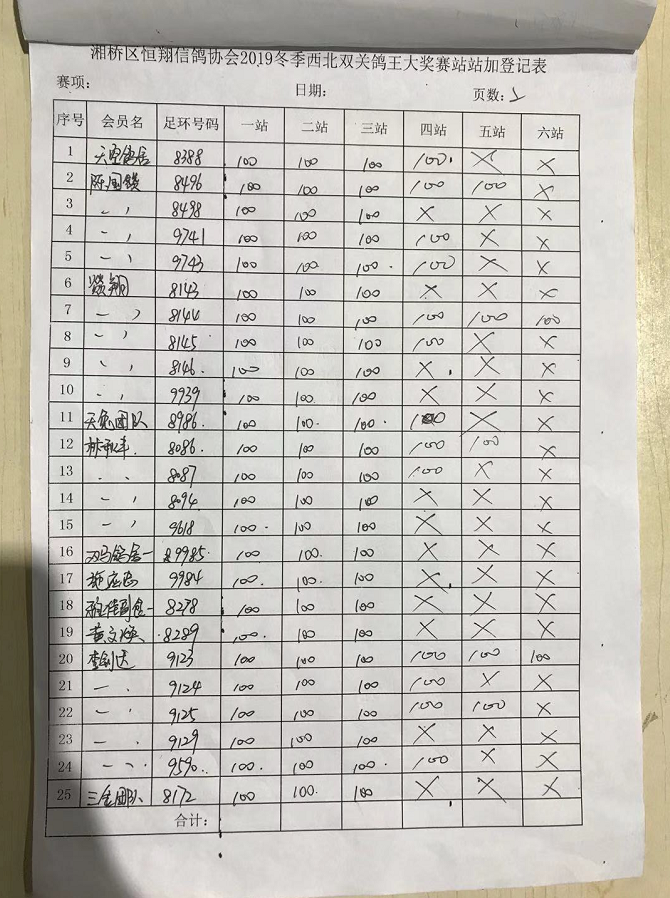 湘桥区恒翔信鸽协会2019冬季西北双关鸽王大奖赛站站加登记表
赛项： 日期： 页数：5
序号 会员名 足环号码 一站 二站 三站 四站 五站 六站
1 天空鸽居 8388 100 100 100 100. × ×
2 陈国镇 8496 100 100 100 100 100 ×
3 〃 8498 100 100 100 × × ×
4 〃 9741 100 100 100 100 × ×
5 〃 9743 100 100 100. 100 × ×
6 8143 100 100 100 × × ×
7 〃 8144 100 100 100 100 100 100
8 〃 8145 100 100 100 100 × ×
9 〃 8146. 100 100 100 × × ×
10 〃 9939 100 100 100 × × ×
11 天兔团队 8986. 100 100. 100. 100 × ×
12 8086. 100 100 100 100 100 ×
13 〃 8087 100 100 100 100 × ×
14 〃 8094 100 100 100 × × ×
15 〃 9618 100. 100 100 × × ×
16 89985. 100 100. 100 × × ×
17 9984 100. 100. 100 × × ×
18 8278 100 100 100 × × ×
19 黄文焕 8289 100. 100 100 × × ×
20 李创达 9123 100 100 100 100 100 100
21 〃 9124 100 100 100 100 × ×
22 〃 9125 100 100 100 100 100 ×
23 〃 9129 100 100 100 × × ×
24 〃 9590. 100. 100 100. 100 × ×
25 三金团队 8172 100 100. 100 × × ×
合计：